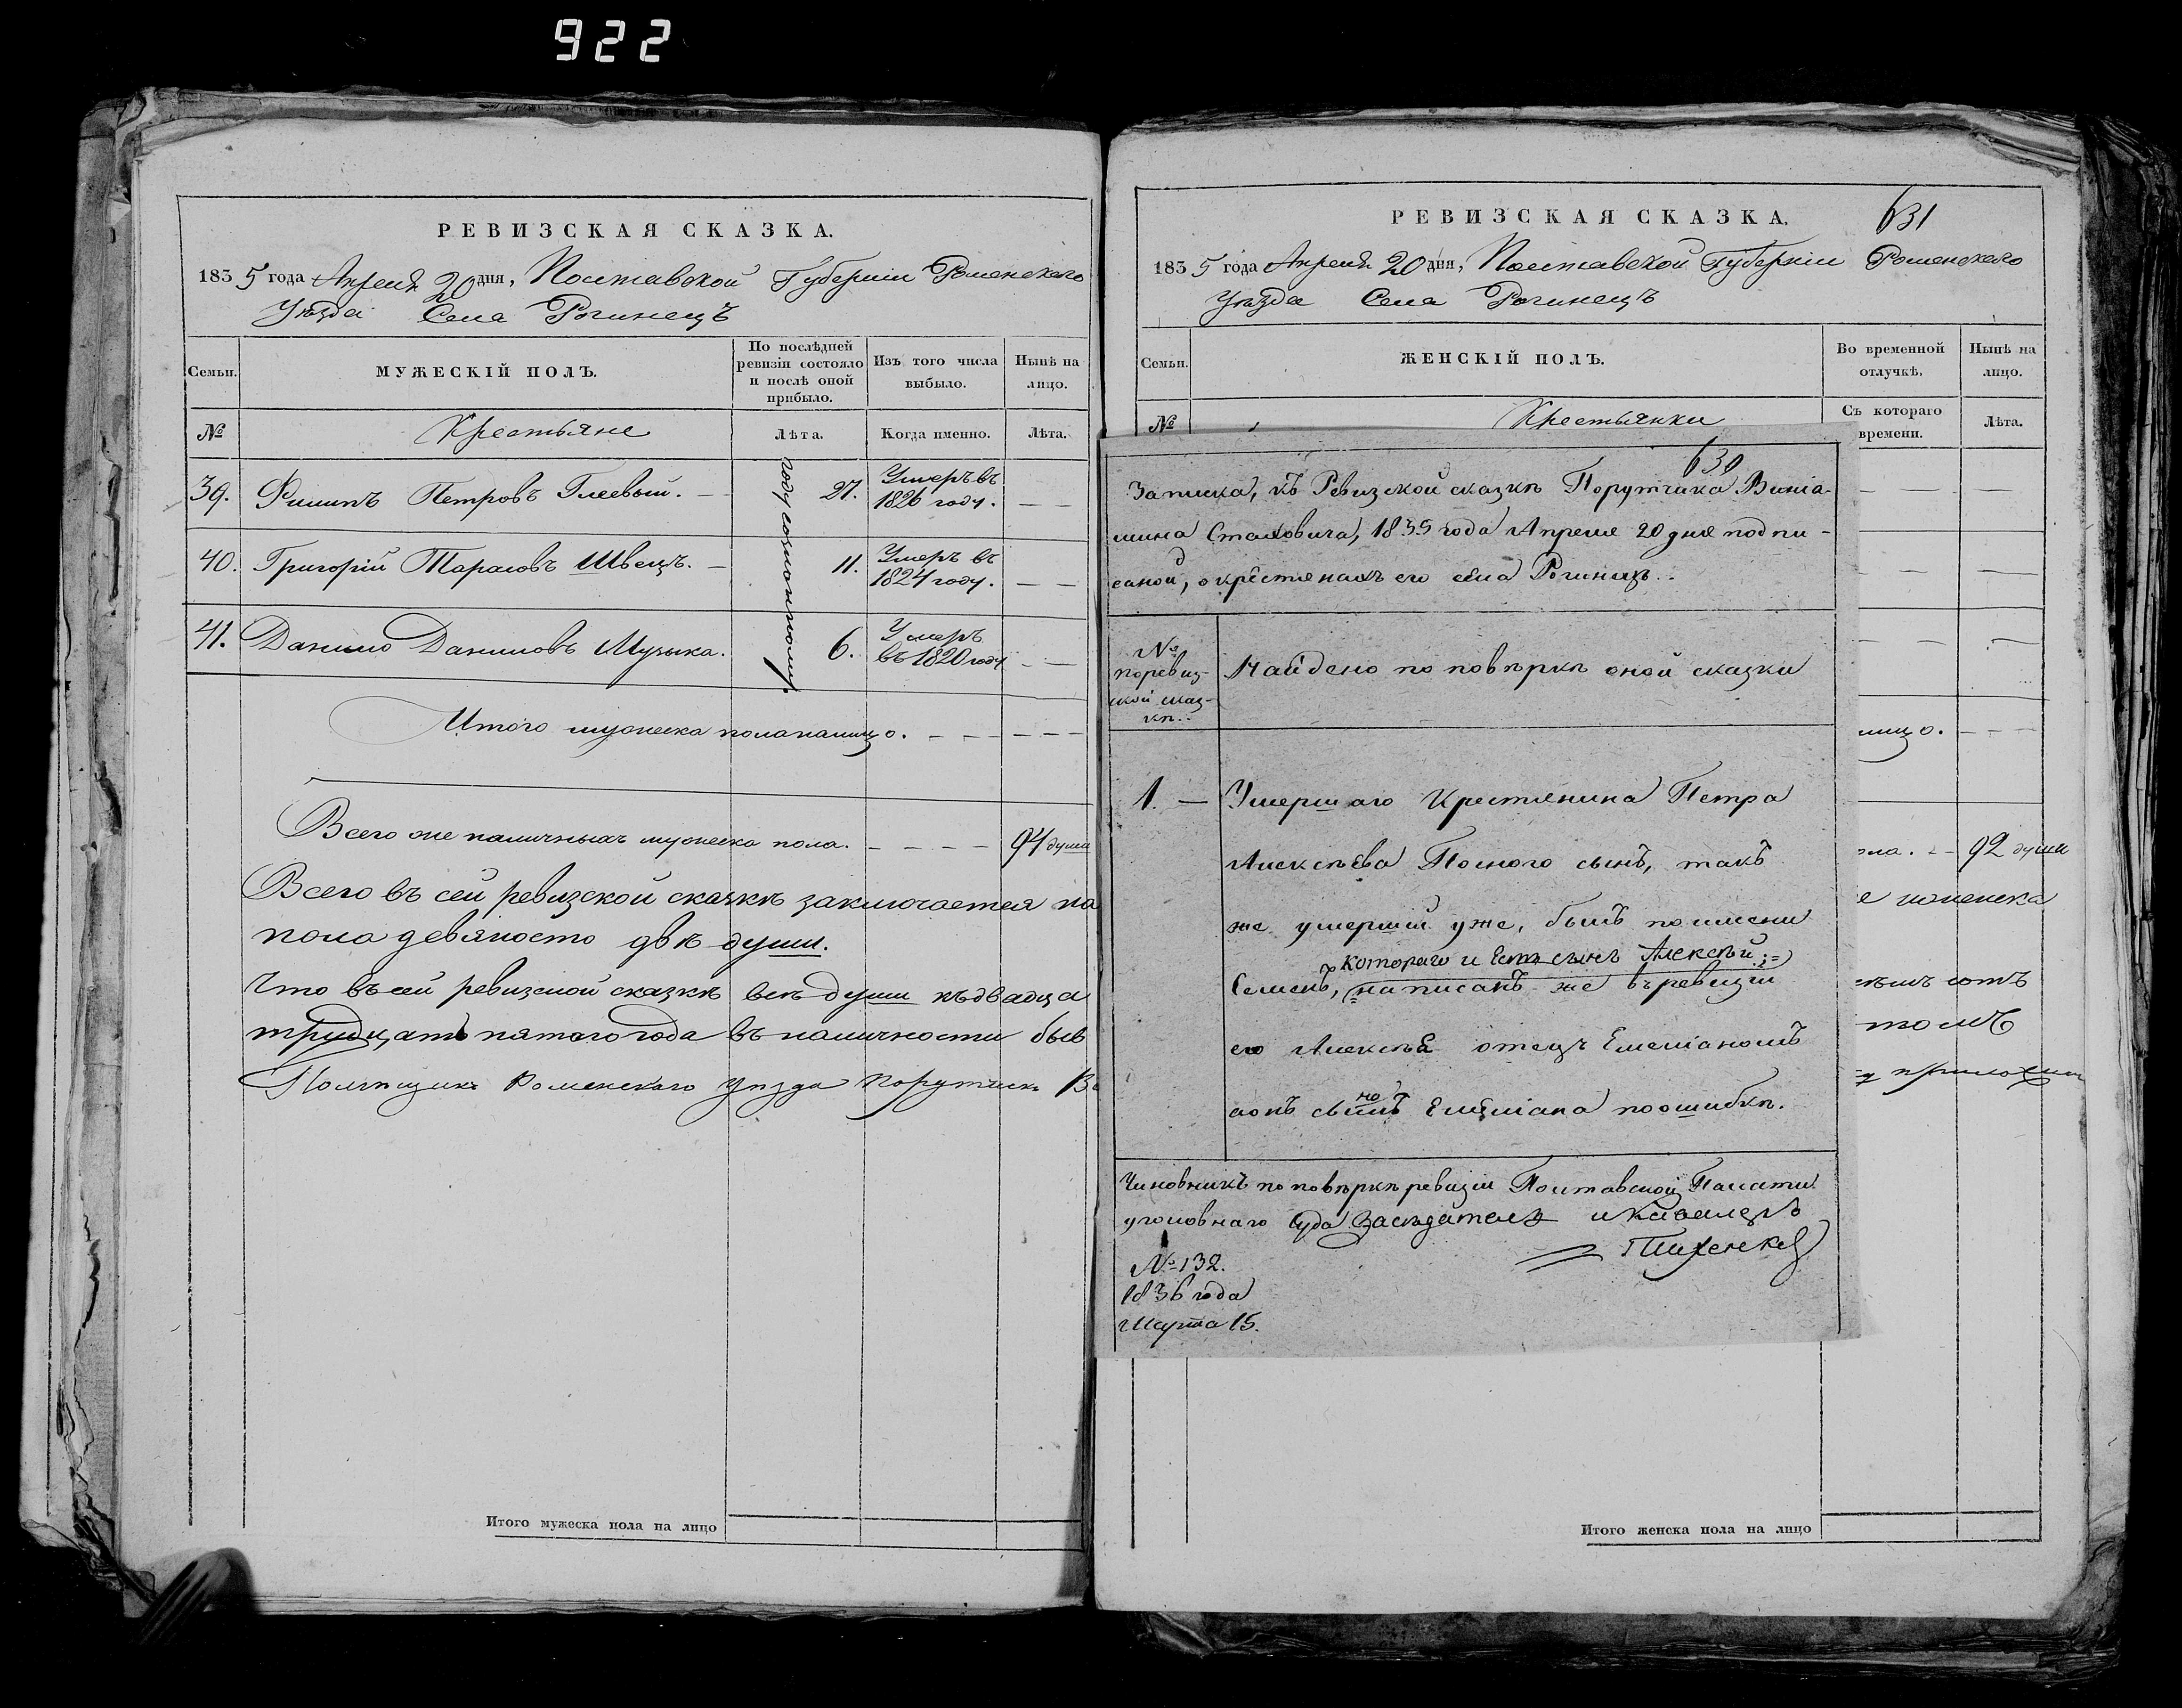 922
РЕВИЗСКАЯ СКАЗКА.
1835 года Апреля 20 дня, Полтавской Губернии Роменского
Уѣзда Села Рогинецъ
Семьи.
МУЖЕСКІЙ ПОЛЪ.
По послѣдней ревизіи состояло и послѣ оной прибыло.
Изъ того числа выбыло.
Нынѣ на лицо.
№
Крестьяне
Лѣта.
Когда именно.
Лѣта.
39. Филипъ Петровъ Глевый. — 27. Умеръ въ 1826 году. — —
40. Григорій Тарасовъ Швецъ. — 11. Умеръ въ 1824 году. — —
41. Данило Даниловъ Музыка. 6. Умеръ въ 1820 году — —
году
Итого мужеска пола на лицо. — — — — — —
Всего же наличныхъ мужеска пола. — — — — 94 души
Всего въ сей ревизской сказкѣ заключается на
пола девяносто двѣ души.
Что въ сей ревизской сказкѣ всѣ души къ двадца
тридцать пятого года въ наличности быв
Помѣщикъ Роменского уѣзда Порутчикъ В
Итого мужеска пола на лицо
РЕВИЗСКАЯ СКАЗКА.
631
1835 года Апреля 20 дня, Полтавской Губернии Роменского
Уѣзда Села Рогинецъ
Семьи.
ЖЕНСКІЙ ПОЛЪ.
Во временной отлучкѣ.
Нынѣ на лицо.
№
Крестьянки
Съ котораго времени.
Лѣта.
630
Записка, къ Ревизской сказкѣ Порутчика Виніа-
мина Стаховича, 1835 года Апреля 20 дня подпи-
саной, о крестянахъ его села Рогинецъ.
№ по ревиз-
ской сказ-
кѣ.
Найдено по повѣркѣ оной сказки
1. — Умершаго Крестянина Петра
Алексѣева Полного сынъ, такъ
же умершій уже, былъ по имени
котораго и есть сынъ Алексѣй;
Семенъ, написанъ же въ ревизіи
его Алексѣя отецъ Емеліаномъ
а онъ сыномъ Емеліана по ошибкѣ.
Чиновникъ по повѣркѣ ревизіи Полтавской Палаты
уголовнаго Суда Засѣдатель и Кавалеръ
№ 132.
1836 года
Марта 15.
лицо. — — —
ола. — 92 души
е женска
томъ
у приложил
Итого женска пола на лицо